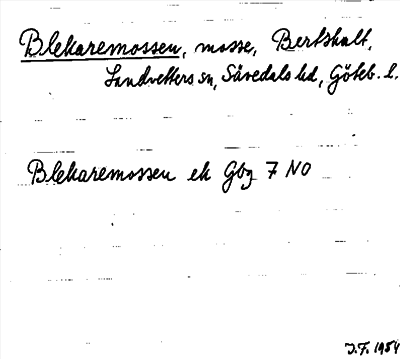 Blekaremossen, mosse, Bertshult,
Landvetters sn, Sävedals hd, Göteb. l.
Blekaremossen ek Gbg 7 NO
J.F. 1954